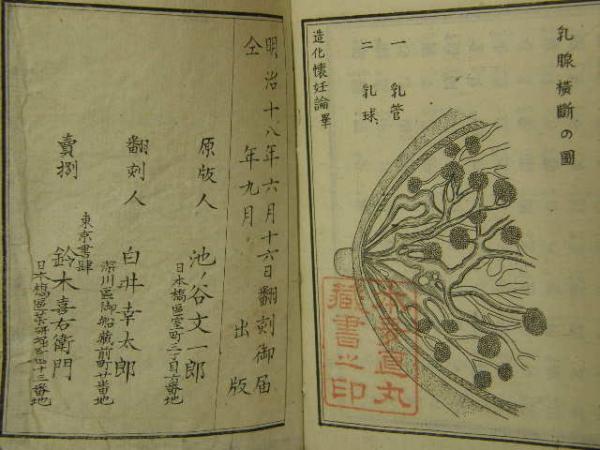 乳腺横斷の圖
一 乳管
二 乳球
造化懐妊論畢
明治十八年六月十六日翻刻御届
仝 年九月 出版
原版人 池ノ谷文一郎
日本橋區室町三丁目六番地
翻刻人 白井幸太郎
深川區御船藏前町廿番地
東京書肆
賣捌 鈴木喜右衛門
藏書之印